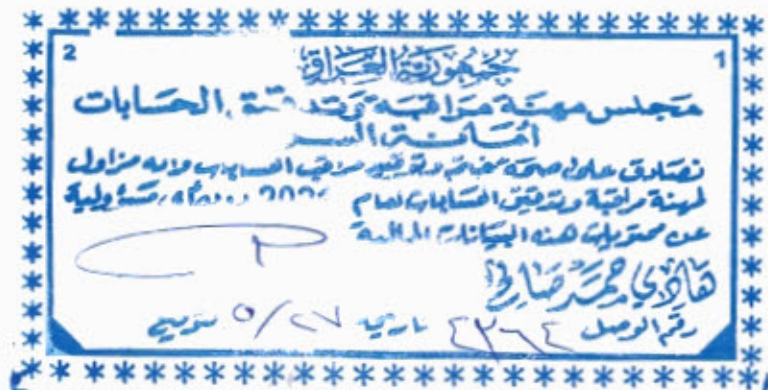 2 1
جمهورية العراق
مجلس مهنة مراقبة وتدقيق الحسابات
أمانة السر
نصادق على صحة ختم وتوقيع مراقب الحسابات وانه مزاول
لمهنة مراقبة وتدقيق الحسابات لعام مسؤولية
عن محتويات هذه البيانات المالية
هادي حمد صالح
رقم الوصل ٤٣٦٤ تاريخ ٥/٢٧